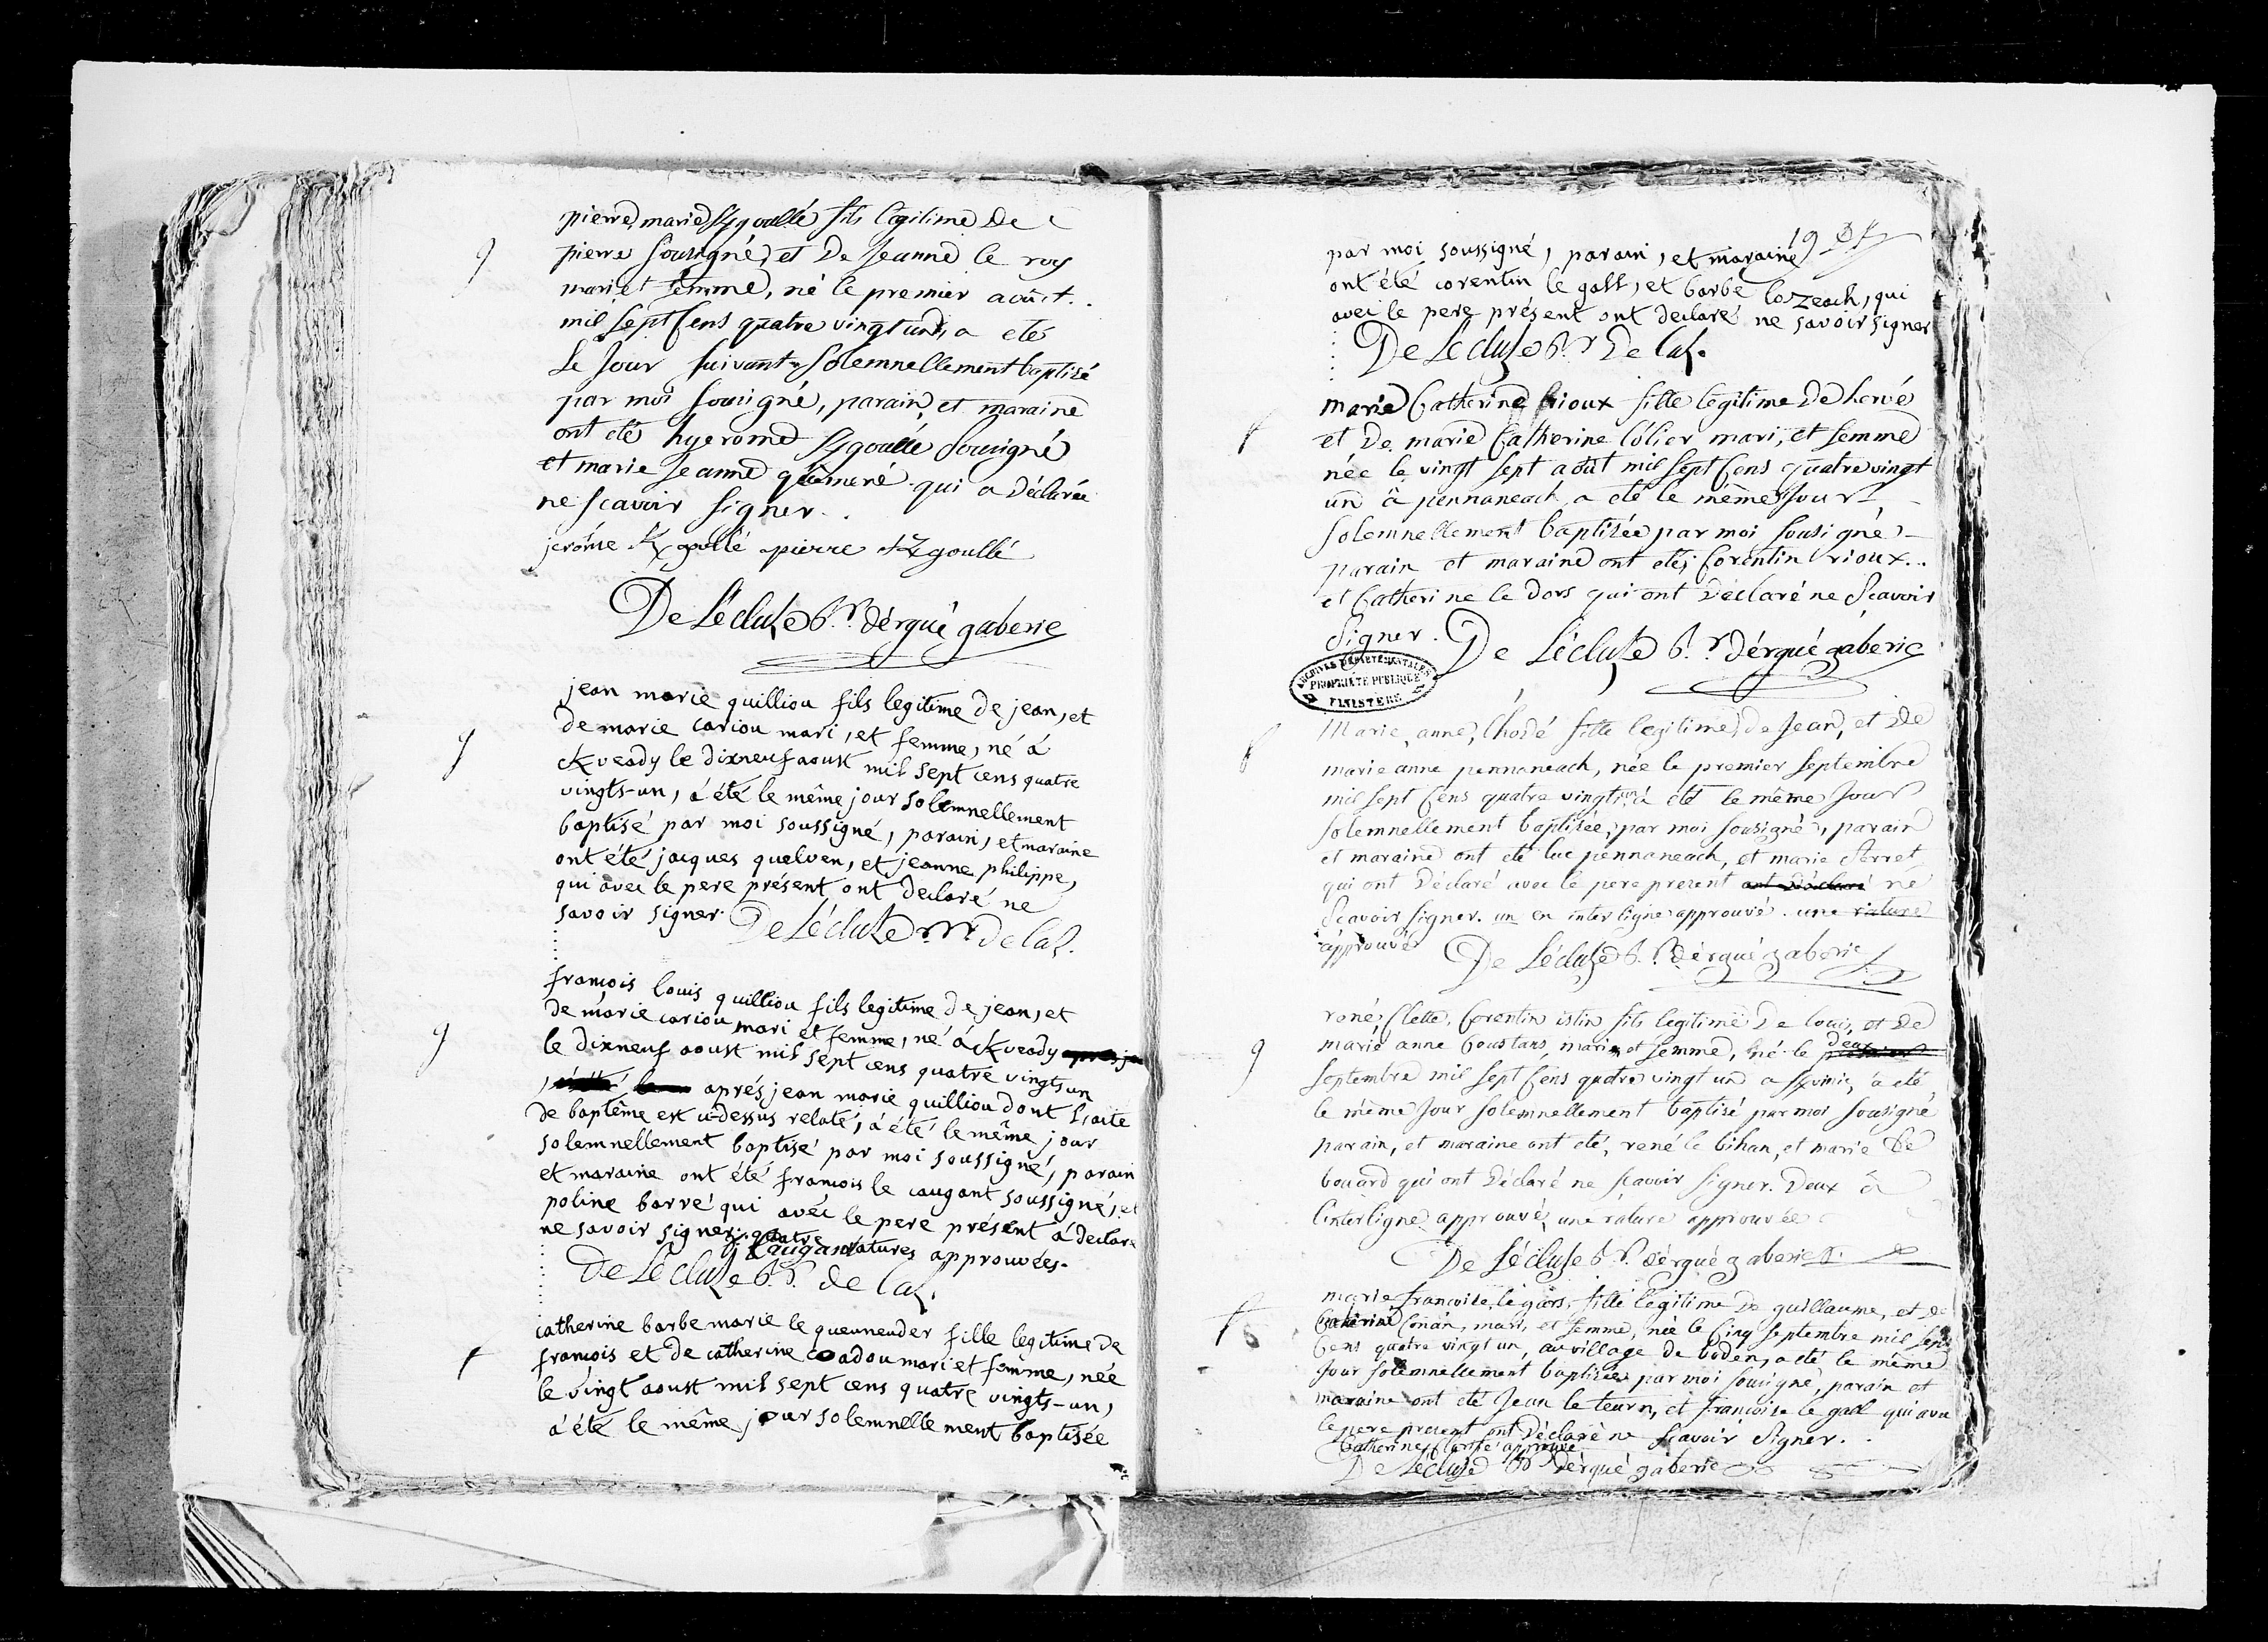 pierre marie Kgoullé fils légitime de
g
pierre sousigné, et de Jeanne le roy
mari et femme, né le premier août.
mil sept cens quatre vingt un, a eté
le jour suivant solemnellement baptisé
par moi sousigné, parain, et maraine
ont eté hyerome Kgoullé sousigné
et marie Jeanne quéméré qui a déclarée
ne scavoir signer.
jerôme Kgoullé pierre Kgoullé
De Lécluze b.r d'ergué gaberic
jean marie quilliou fils legitime de jean, et
g
de marie cariou mari, et femme, né á
Kveady le dixneuf aoust mil sept cens quatre
vingts-un, á été le même jour solemnellement
baptisé par moi soussigné, parain, et maraine
ont été jacques quelven, et jeanne philippe,
qui avec le pere présent ont declaré ne
savoir signer. De Lécluze de Laz.
françois louis quilliou fils legitime de jean, et
de marie cariou mari et femme, né á Kveady
g
le dixneuf aoust mil sept cens quatre vingts un
aprés jean marie quilliou dont l'acte
de baptême est ci-dessus relaté, á été le même jour
solemnellement baptisé par moi soussigné, parain
et maraine ont été françois le caugant soussigné, et
poline barré qui avec le pere présent á declaré
ne savoir signer. quatre ratures approuvées.
f. Caugant
De Lécluze b.r de Laz.
catherine barbe marie le queuneuder fille legitime de
f
françois et de catherine coadou mari et femme, née
le vingt aoust mil sept cens quatre vingts-un,
á été le même jour solemnellement baptisée
19
par moi soussigné, parain, et maraine
ont été corentin le gall, et barbe lozeach, qui
avec le pere présent ont declaré ne savoir signer
De Lécluze b.r De Laz.
marie Catherine Rioux fille légitime de hervé
f
et de marie Catherine Colier mari, et femme
née le vingt sept août mil sept cens quatre vingt
un à pennaneach a eté le même jour
solemnellement baptizée par moi sousigné
parain et maraine ont eté, Corentin rioux..
et Catherine le dors qui ont déclaré ne scavoir
signer. De Lécluze b.r d'ergué gaberic
ARCHIVES DÉPARTEMENTALES
PROPRIÉTÉ PUBLIQUE
FINISTÈRE
Marie, anne, Chodé fille legitime de Jean, et de
f
marie anne pennaneach, née le premier septembre
mil sept cens quatre vingt un à eté le même jour
solemnellement baptisée, par moi sousigné, parain
et maraine ont eté luc pennaneach, et marie Perret
qui ont déclaré avec le pere present ont déclaré ne
scavoir signer. un en interligne approuvé. une rature
approuvé De Lécluze b.r d'ergué gaberic
rené, Corentin istin fils legitime de louis, et de
marie anne Coustans, mari et femme, né le deux
g
septembre mil sept cens quatre vingt un a a eté
le même jour solemnellement baptisé par moi sousigné
parain, et maraine ont eté, rené le bihan, et marie le
bouard qui ont déclaré ne scavoir signer. Deux à
l'interligne approuvé, une rature approuvée
De Lécluze b.r d'ergué gaberic
marie françoise le gars, fille legitime de guillaume, et de
f
Catherine Conan, mari, et femme, née le Cinq septembre mil sept
cens quatre vingt un, au village de boden, a eté le même
jour solemnellement baptisée par moi sousigné, parain et
maraine ont eté Jean le teurn, et françoise le gall qui avec
le pere present ont déclaré ne scavoir signer..
Catherine approuvé
De Lécluze b.r d'ergué gaberic